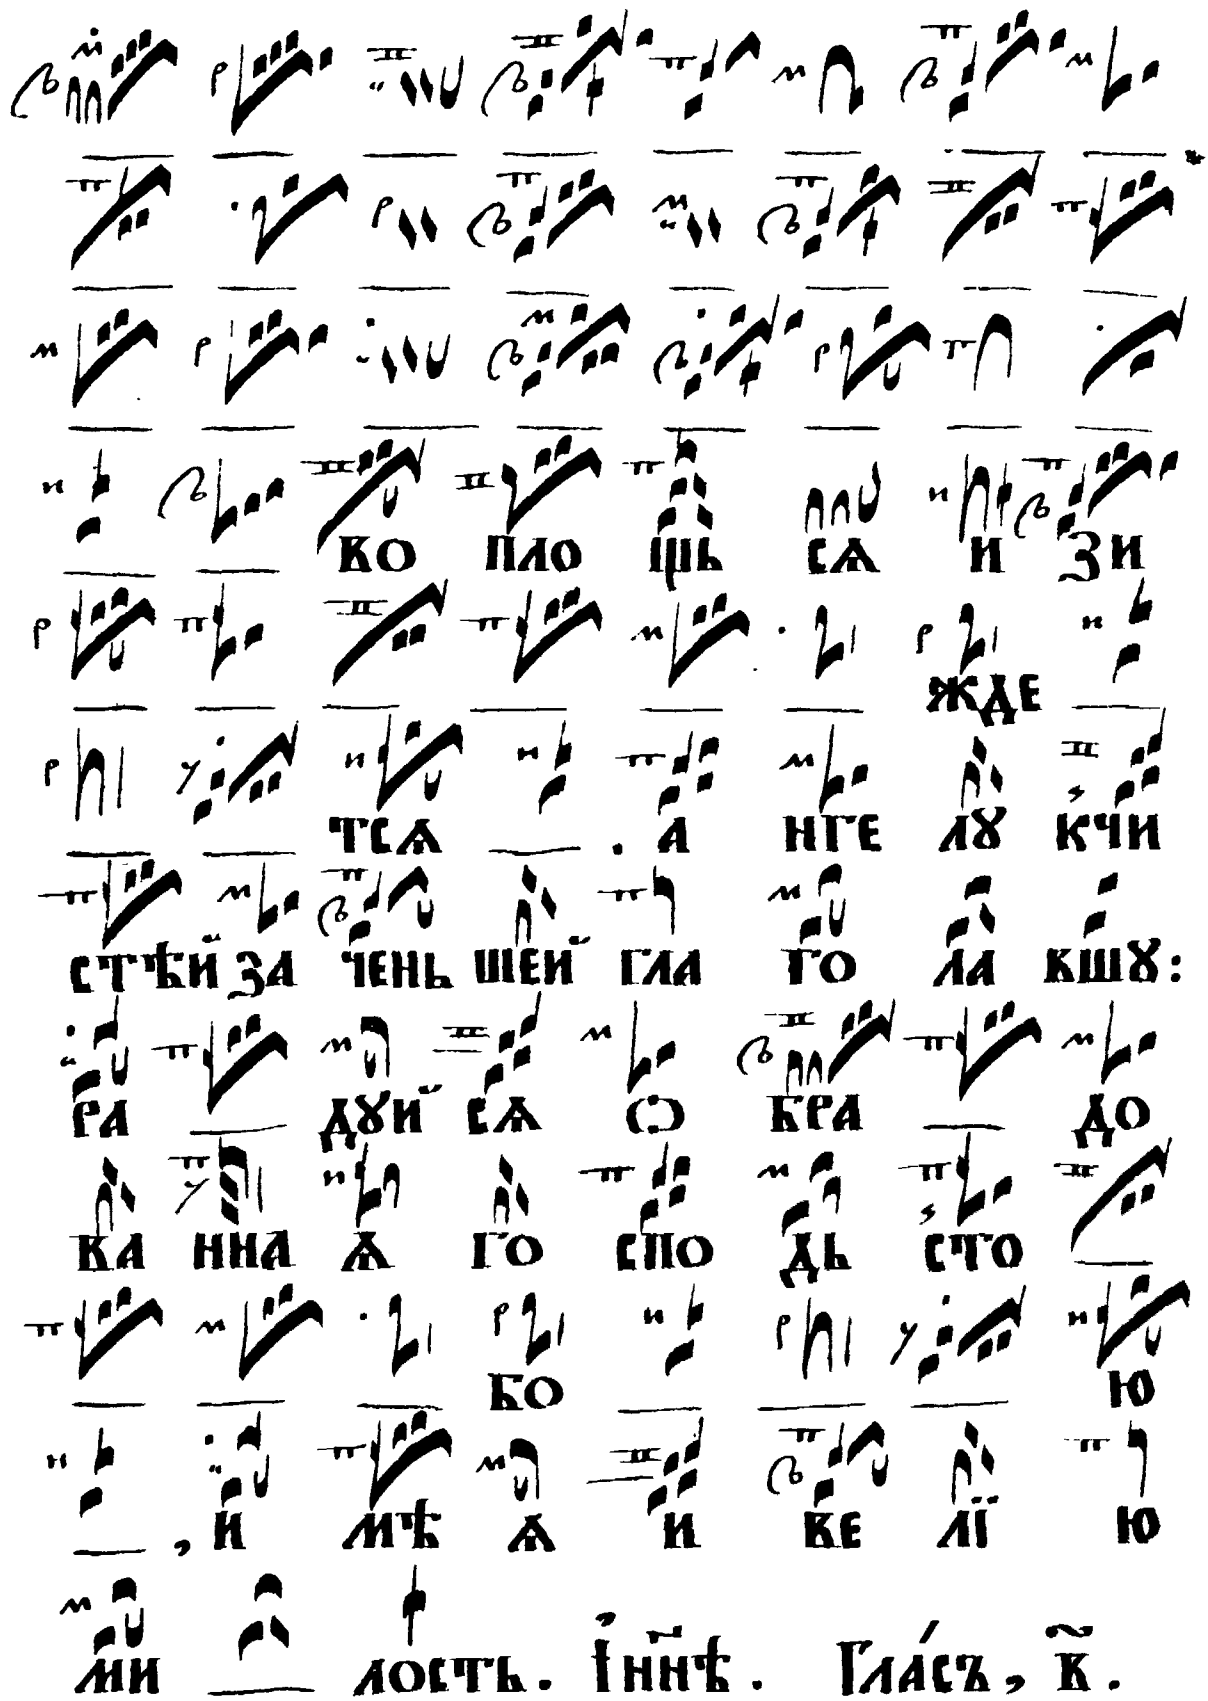 ВО ПЛО ЩЬ СѦ И ЗИ
ЖДЕ
ТСѦ . А НГЕ ЛꙊ К҆ЧИ
СТѢЙ ЗА ЧЕНЬ ШЕЙ ГЛА ГО ЛА ВШꙊ:
РА ДꙊЙ СѦ Ѡ БРА ДО
ВА ННА Ѧ ГО СПО ДЬ СТО
БО Ю
, И МѢ Ѧ И ВЕ ЛЇ Ю
МИ ЛОСТЬ . І҆Н҃НѢ . ГЛА́СЪ , В҃ .